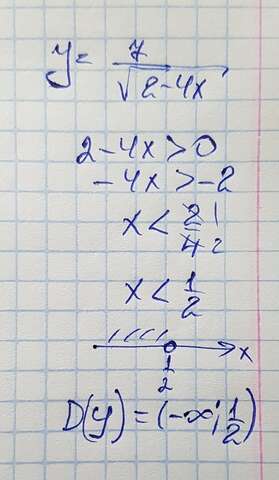 y = 7/√(2-4x)
2-4x>0
-4x>-2
x < 2/4 1/2
x < 1/2
1/2 x
D(y) = (-∞; 1/2)